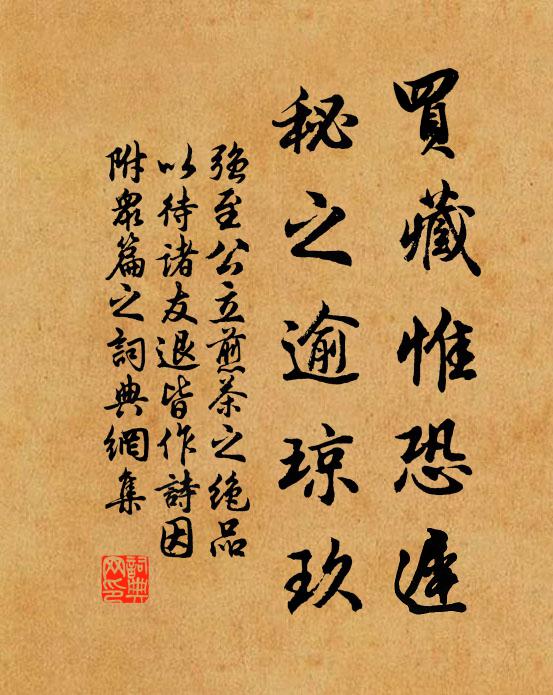 買藏惟恐遲
秘之逾琼玖
強至公立煎茶之絶品
以待諸友退皆作詩因
附衆篇之詞典網集
詞典网印